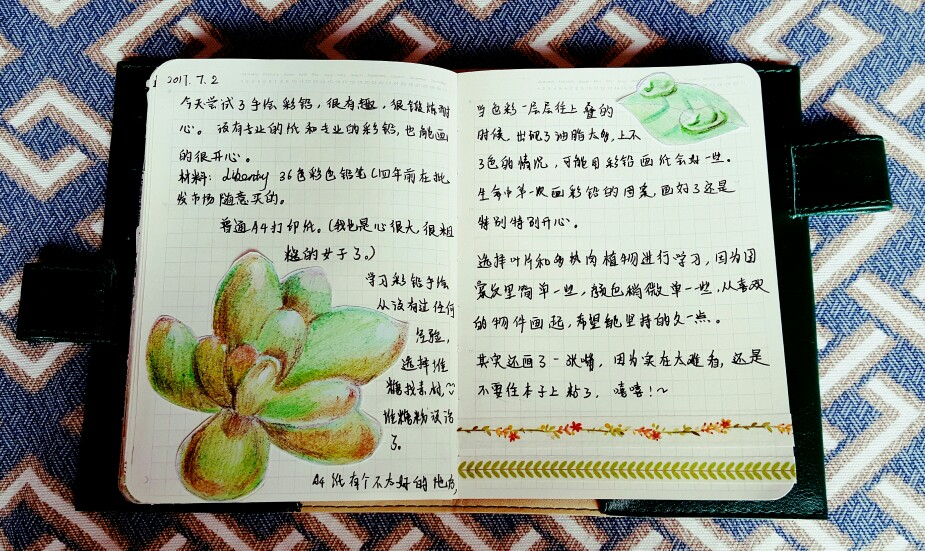 2017.7.2
今天尝试了手绘彩铅，很有趣，很锻炼耐
心。没有专业的纸和专业的彩铅，也能画
的很开心。
材料：Liberty 36色彩色铅笔（四年前在批
发市场随意买的。
普通A4打印纸。（我也是心很大很粗
糙的女子了。）
学习彩铅手绘
从没有过任何
经验，
选择堆
糖找素材，
堆糖粉没话
了。
A4纸有个不太好的地方，
当色彩一层层往上叠的
时候，出现了油脂太多，上不
了色的情况，可能用彩铅画纸会好一些。
生命中第一次画彩铅的图案画好了还是
特别特别开心。
选择叶片和多肉植物进行学习，因为图
案纹里简单一些，颜色稍微单一些，从喜欢
的物件画起，希望能坚持的久一点。
其实还画了一张嘴，因为实在太难看，还是
不要往本子上粘了，嘻嘻！~